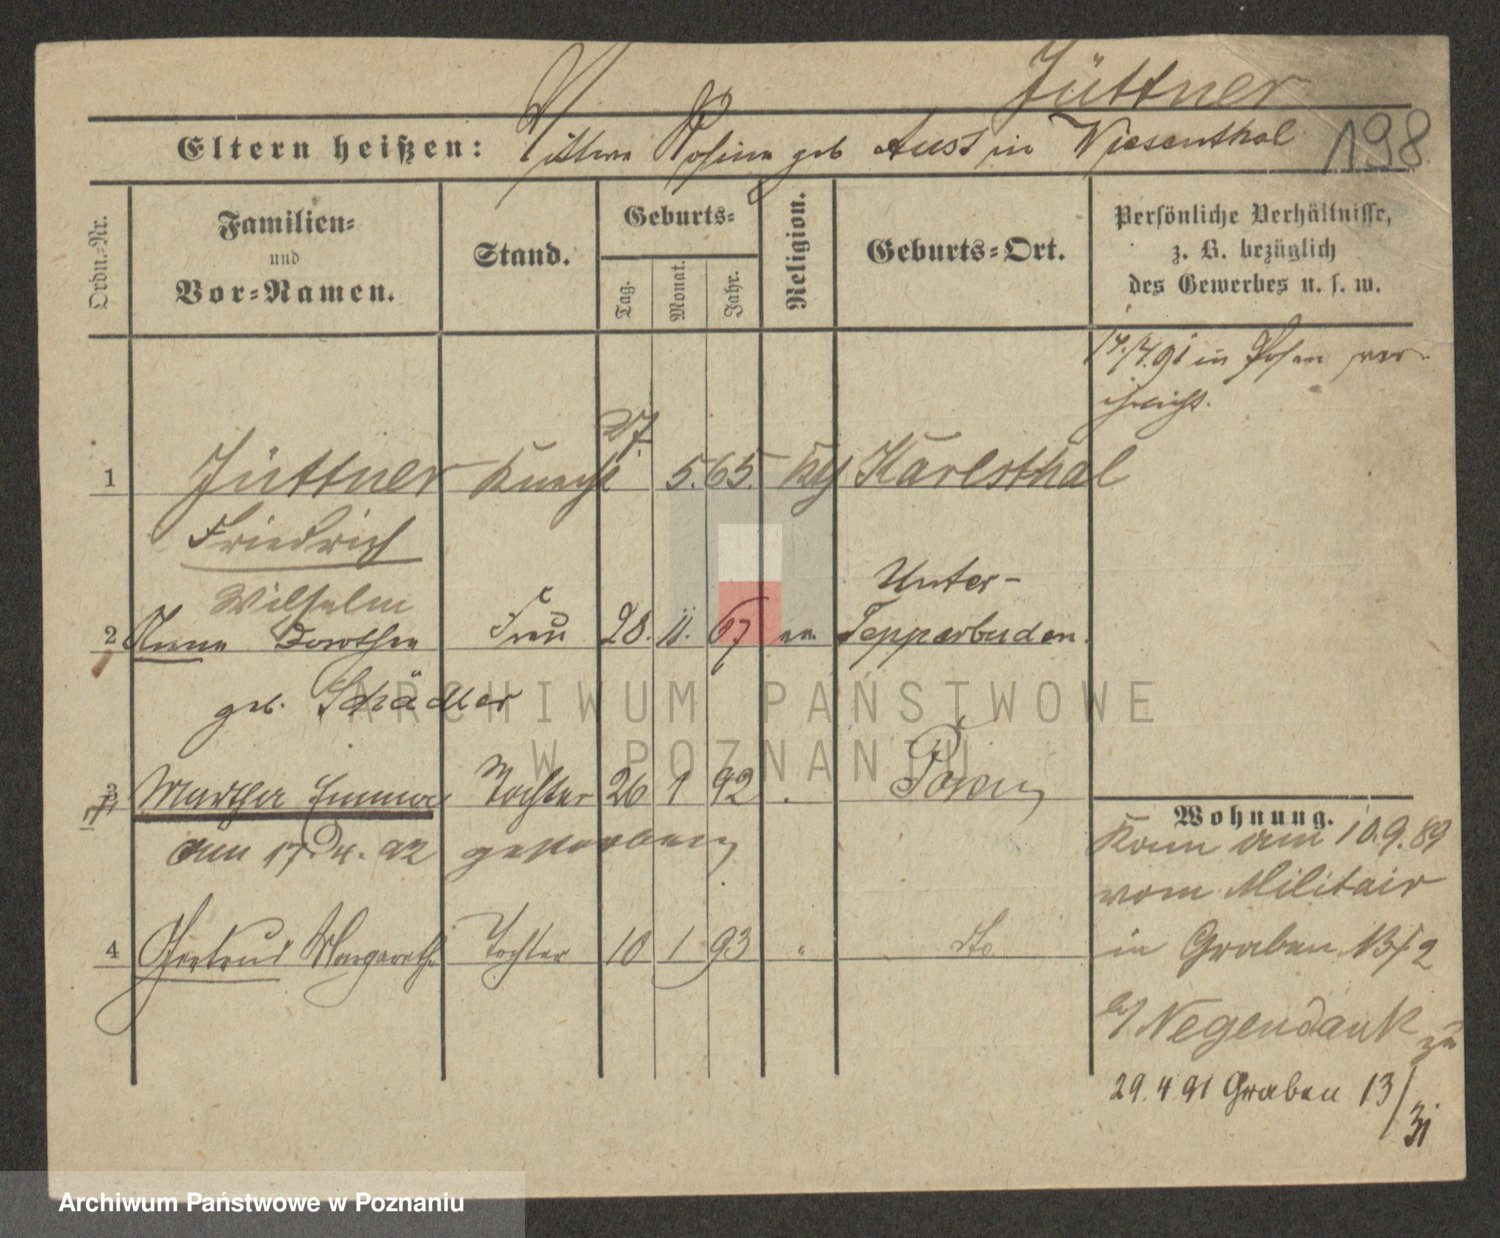 Jüttner
198
Eltern heißen: Rosina geb Aust in Wiesenthal
Ordn.-Nr.
Familien-
und
Vor-Namen.
Stand.
Geburts-
Tag.
Monat.
Jahr.
Religion.
Geburts-Ort.
Persönliche Verhältnisse,
z. B. bezüglich
des Gewerbes u. s. w.
17./4.91 in Posen ver-
27.
1 Jüttner Knecht 5. 65. Karlsthal
Friedrich
Wilhelm
Unter-
2 Anna Dorothea Frau 28. 11. 67 ev. Tepperbuden.
geb. Schädler
3 Martha Emma Tochter 26 1 92 Posen
am 17. 4. 92 gestorben
4 Gertrud Margareth. Tochter 10 1 93 " do.
Wohnung.
Kam am 10.9.89
vom Militair
in Graben 13/2
b/ Negendank zu
29.4 91 Graben 13/
31
ARCHIWUM PAŃSTWOWE
W POZNANIU
Archiwum Państwowe w Poznaniu